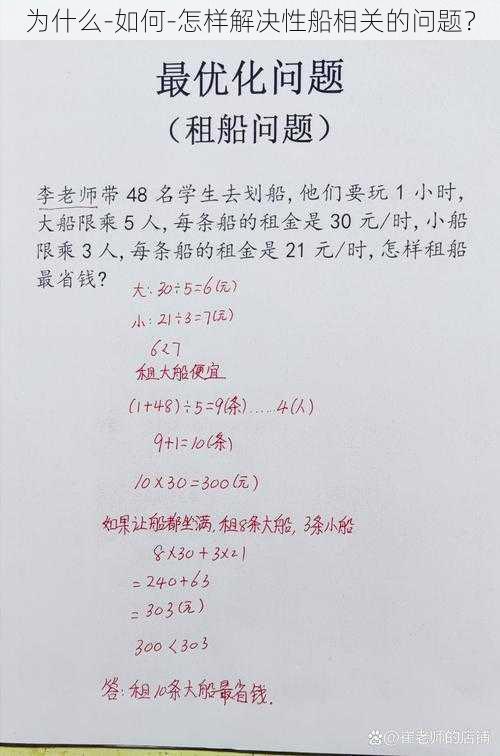 为什么-如何-怎样解决性船相关的问题？
最优化问题
（租船问题）
李老师带 48 名学生去划船,他们要玩 1 小时,
大船限乘 5 人,每条船的租金是 30 元/时,小船
限乘 3 人,每条船的租金是 21 元/时,怎样租船
最省钱?
大:30÷5=6(元)
小:21÷3=7(元)
6<7
租大船便宜
(1+48)÷5=9(条)……4(人)
9+1=10(条)
10×30=300(元)
如果让船都坐满,租8条大船,3条小船
8×30+3×21
=240+63
=303(元)
300<303
答:租10条大船最省钱.
崔老师的店铺